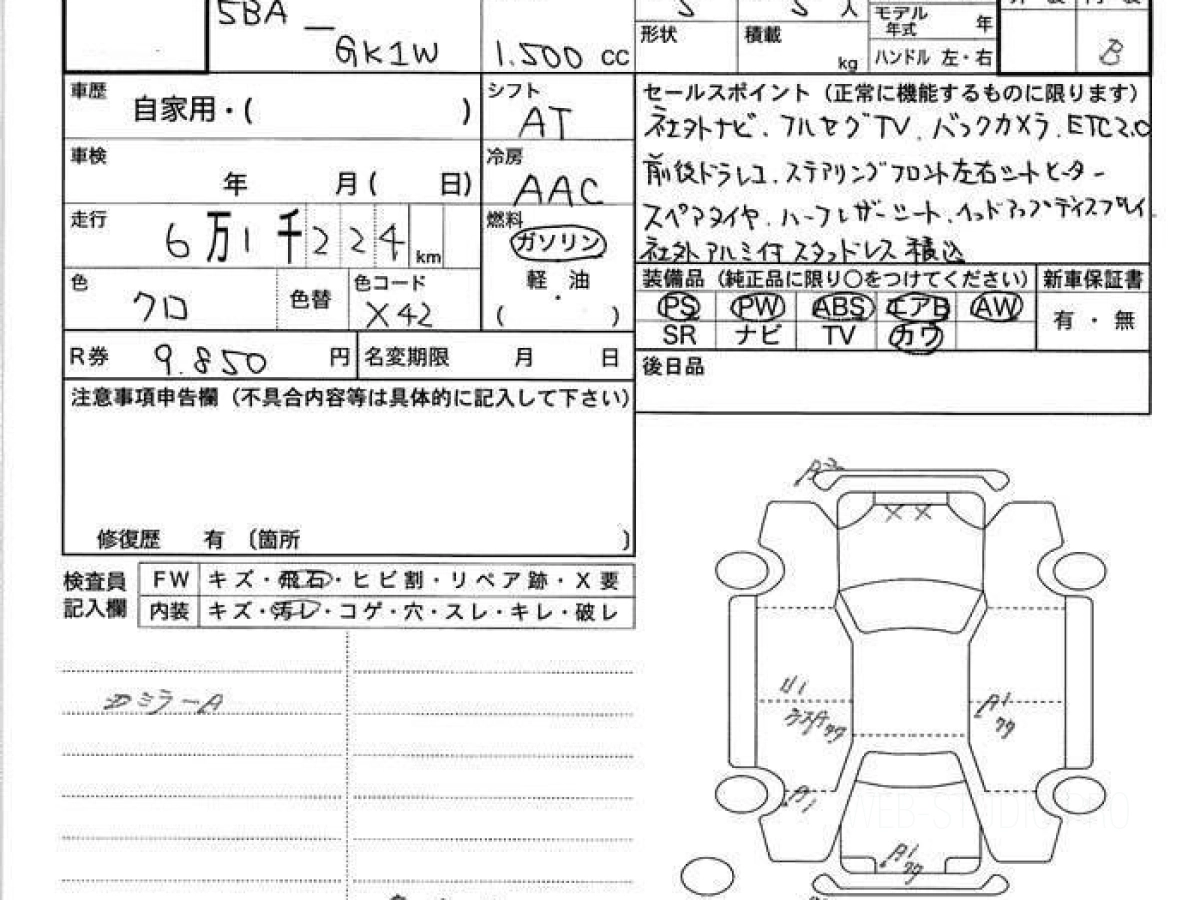 5BA
GK1W
1.500 cc
5
5 人
形状
積載
kg
モデル
年式
年
ハンドル 左・右
B
車歴
自家用・( )
シフト
AT
セールスポイント（正常に機能するものに限ります）
社外ナビ、フルセグTV、バックカメラ、ETC2.0
前後ドラレコ、ステアリングフロント左右シートヒーター
スペアタイヤ、ハーフレザーシート、ヘッドアップディスプレイ
社外アルミ付スタッドレス積込
車検
年 月( 日)
冷房
AAC
走行
6万1千224km
燃料
ガソリン
軽・油
( )
色
クロ
色替
色コード
X42
R券 9.850 円
名変期限 月 日
装備品（純正品に限り○をつけてください）
新車保証書
PS PW ABS エアB AW
有・無
SR ナビ TV カワ
後日品
注意事項申告欄（不具合内容等は具体的に記入して下さい）
修復歴 有 〔箇所 〕
検査員
記入欄
FW キズ・飛石・ヒビ割・リペア跡・X要
内装 キズ・汚レ・コゲ・穴・スレ・キレ・破レ
ミラーA
XX
U1
A1
A1
A1
WEB-STUDIO.PRO